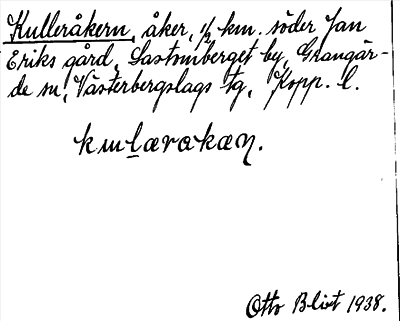 Kulleråkern, åker, 1/2 km. söder Jan
Eriks gård, Sastomberget by, Grangär-
de sn, Västerbergslags tg, Kopp. l.
kɯlærakæɳ.
Otto Blixt 1938.